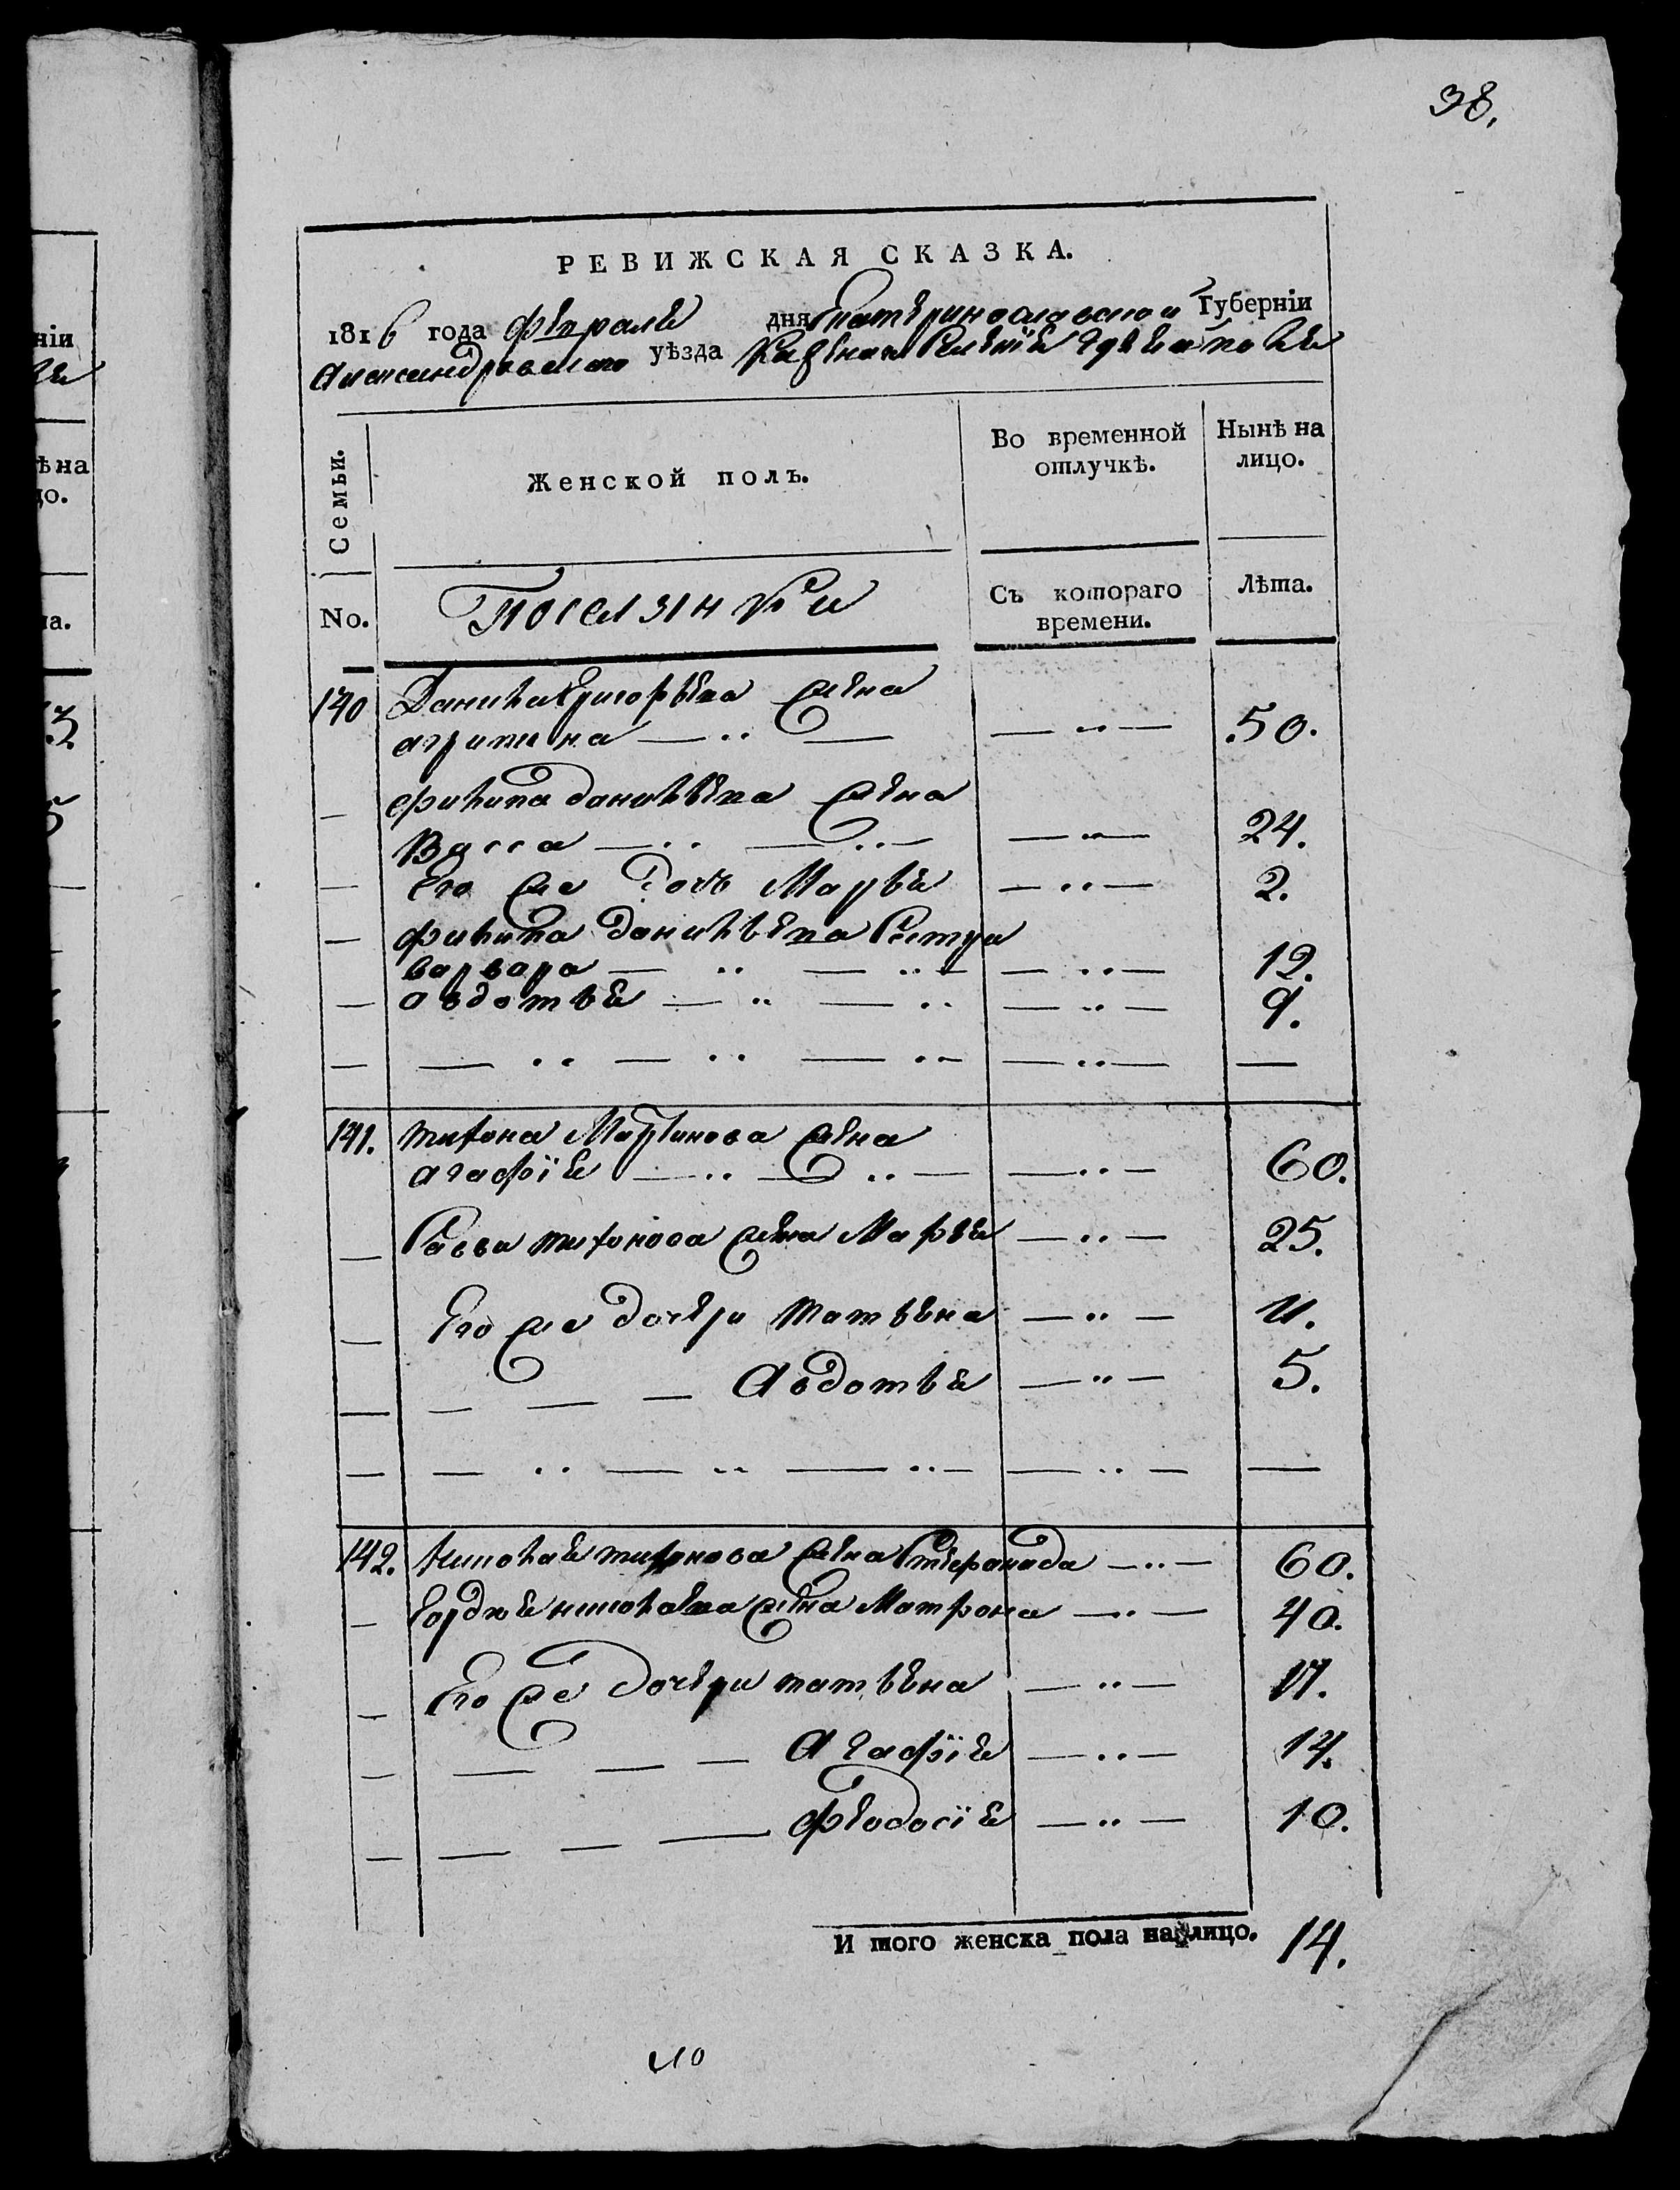 38.
РЕВИЖСКАЯ СКАЗКА.
1816 года февраля дня Екатеринославской Губернiи
Александровского уѣзда Казенного Селения
Семьи. Женской полъ. Во временной отлучкѣ. Нынѣ на лицо.
No. Поселянки Съ котораго времени. Лѣта.
140 Данила Григорьева жена
агрипина — .. — — .. — 50.
— филипа данильева жена
Васса — .. — .. — — .. — 24.
— Его же дочь Марья — .. — 2.
— филипа данильева сестры
варвара — .. — .. — — .. — 12.
— авдотья — .. — .. — .. — 9.
— — .. — .. — .. — — .. — —
141. тихона Мартинова жена
агафiя — .. — .. — — .. — 60.
— Савы тихонова жена Марья — .. — 25.
— Его же дочери татьяна — .. — 11.
— — — — Авдотья — .. — 5.
— — .. — .. — .. — — .. — —
142. Николая тихонова жена Степанида — .. — 60.
— Гордея николаева жена Матрона — .. — 40.
— Его же дочери татьяна — .. — 17.
— — — — Агафiя — .. — 14.
— — — — феодосiя — .. — 10.
И того женска пола на лицо. 14.
нiи
ѣ на
цо.
та.
3.
5